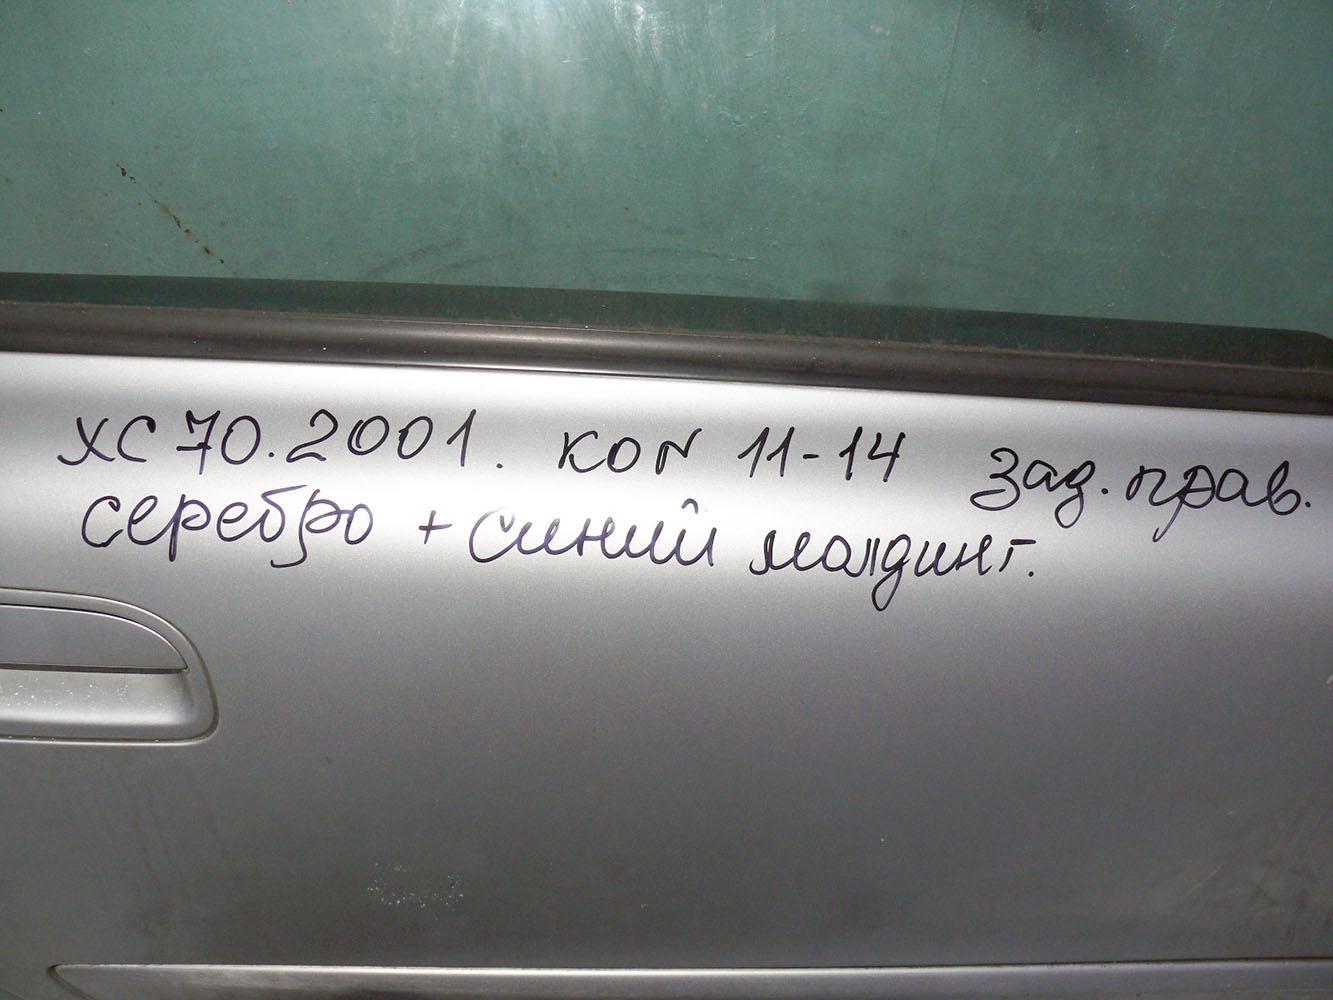 ХС 70. 2001. кон 11-14 зад. прав.
серебро + синий молдинг.